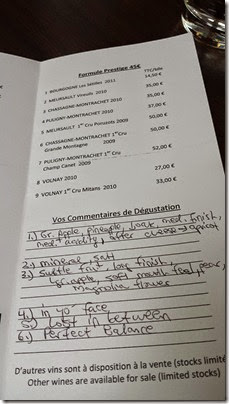 Formule Prestige 45€
TTC/btle
1 BOURGOGNE Les Sétilles 2011 14,50 €
2 MEURSAULT Vireuils 2010 35,00 €
3 CHASSAGNE-MONTRACHET 2010 35,00 €
4 PULIGNY-MONTRACHET 2010 37,00 €
5 MEURSAULT 1er Cru Poruzots 2009 50,00 €
6 CHASSAGNE-MONTRACHET 1er Cru 50,00 €
Grande Montagne 2009
7 PULIGNY-MONTRACHET 1er Cru 52,00 €
Champ Canet 2009
8 VOLNAY 2010 27,00 €
9 VOLNAY 1er Cru Mitans 2010 33,00 €
Vos Commentaires de Dégustation
1.) Gr. Apple, pineapple, oak, med. finish,
med. acidity, after cheese → apricot
2.) mineral, salt
3.) subtle fruit, long finish,
gr. apple, soft mouth feel, pear,
magnolia flower
4.) in yo face
5.) lost in between
6.) Perfect Balance
D'autres vins sont à disposition à la vente (stocks limité
Other wines are available for sale (limited stocks)